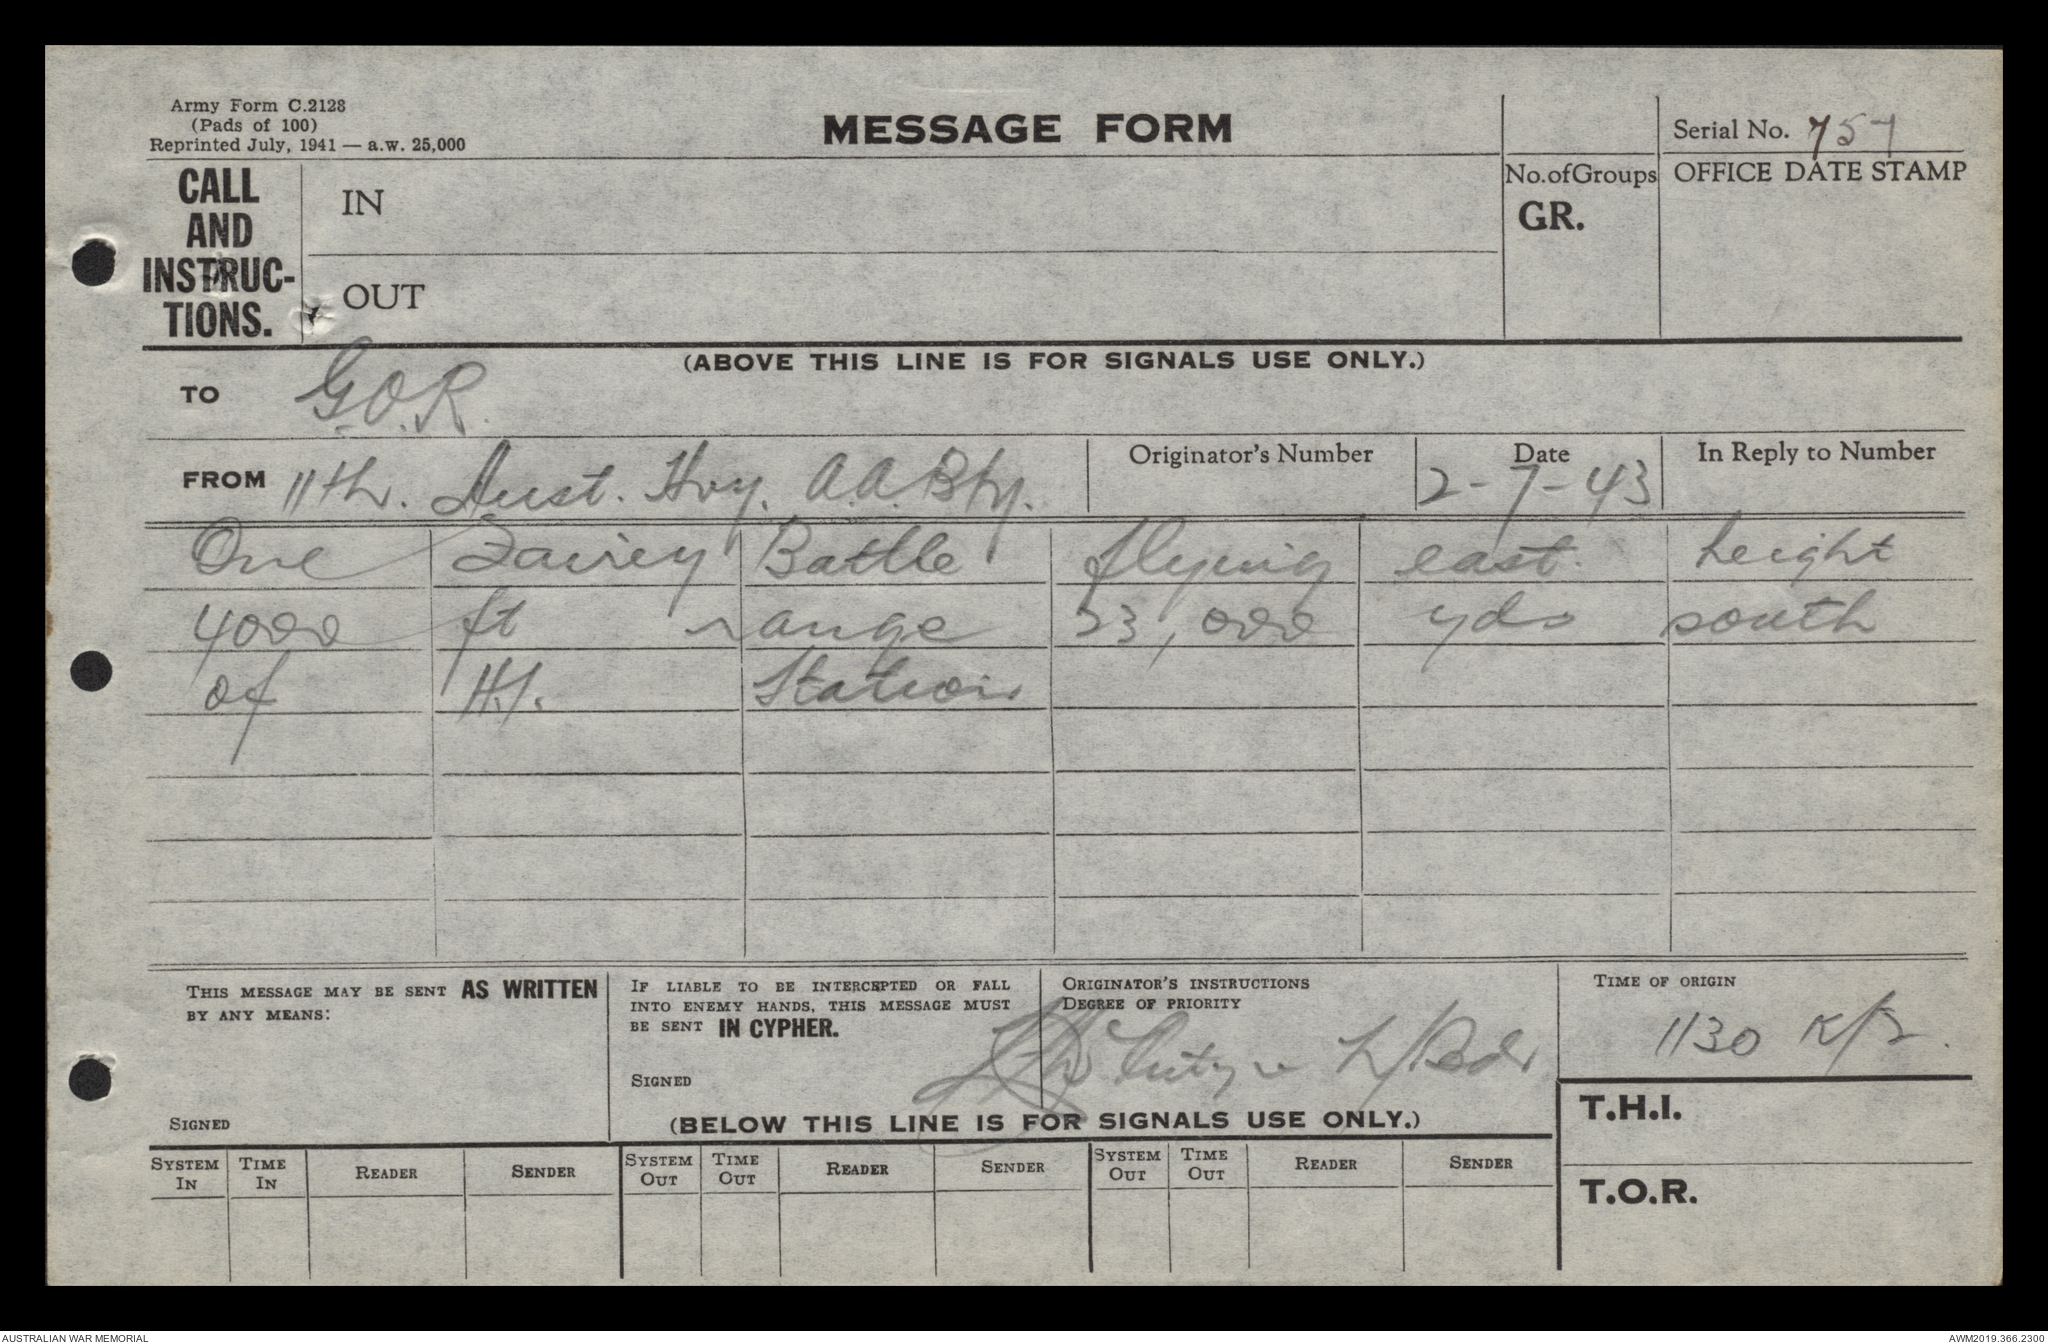 Army Form C.2128
(Pads of 100)
Reprinted July, 1941 — a.w. 25,000
MESSAGE FORM
Serial No. 757
CALL
AND
INSTRUC-
TIONS.
IN
OUT
No. of Groups
GR.
OFFICE DATE STAMP
(ABOVE THIS LINE IS FOR SIGNALS USE ONLY.)
TO G.O.R.
FROM 11th. Aust. Hvy. A.A. Bty.
Originator's Number
Date
2-7-43
In Reply to Number
One Fairey Battle flying east. height
4000 ft range 23,000 yds south
of H.I. Station
THIS MESSAGE MAY BE SENT AS WRITTEN
BY ANY MEANS:
SIGNED
IF LIABLE TO BE INTERCEPTED OR FALL
INTO ENEMY HANDS, THIS MESSAGE MUST
BE SENT IN CYPHER.
SIGNED
ORIGINATOR'S INSTRUCTIONS
DEGREE OF PRIORITY
L/Bdr
TIME OF ORIGIN
1130
(BELOW THIS LINE IS FOR SIGNALS USE ONLY.)
T.H.I.
T.O.R.
SYSTEM IN TIME IN READER SENDER SYSTEM OUT TIME OUT READER SENDER SYSTEM OUT TIME OUT READER SENDER
AUSTRALIAN WAR MEMORIAL
AWM2019.366.2300